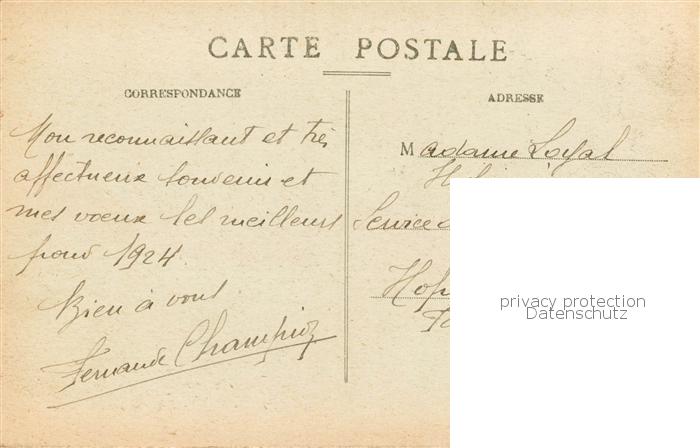 CARTE POSTALE
CORRESPONDANCE
ADRESSE
Mon reconnaissant et très
affectueux souvenir et
mes vœux les meilleurs
pour 1924
Bien à vous
Fernande Champion
Madame Loyal
Service
privacy protection
Datenschutz